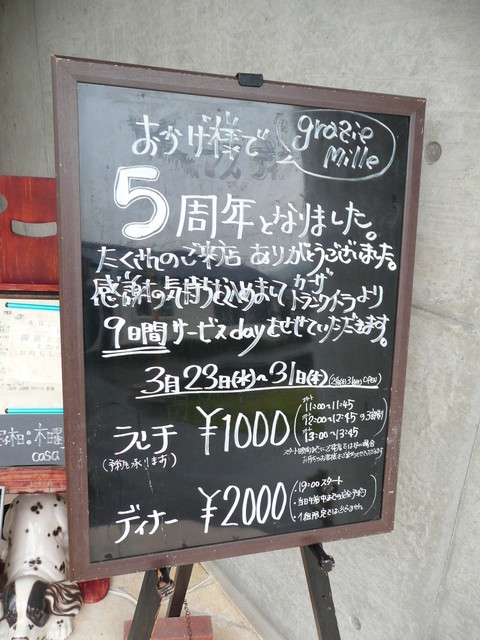 おかげ様で
grazie
mille
5周年となりました。
たくさんのご来店 ありがとうございました。
感謝の気持ちをこめまして カーザ
トランクイラより
9日間サービスdayとさせていただきます。
3月23日(水)〜31日(木)
ランチ ¥1000
(予約も承ります)
11:00〜11:45
12:00〜12:45 の3部制
13:00〜13:45
ディナー ¥2000
・19:00スタート
・当日午前中までの完全予約
定休日:木曜
casa